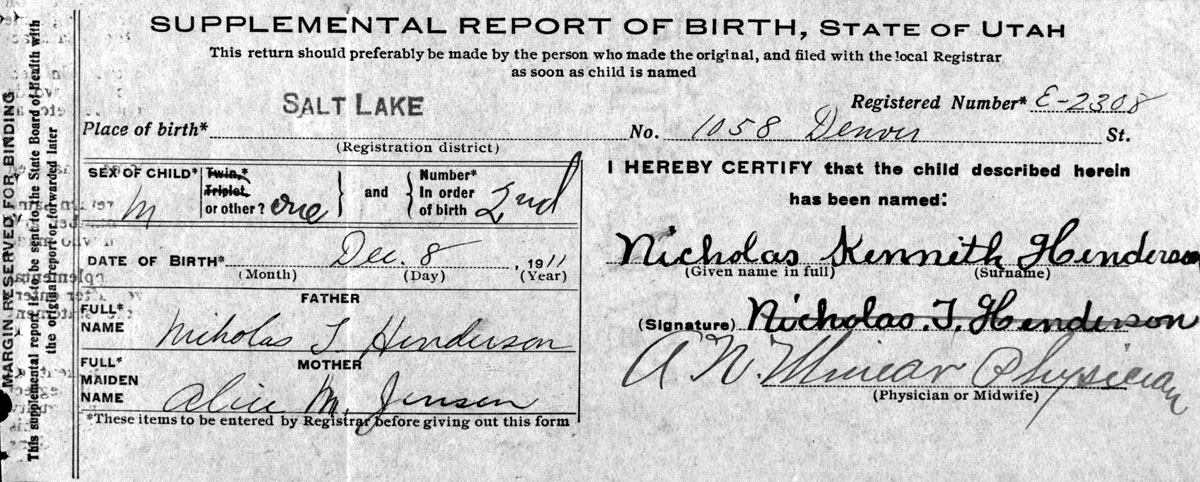 SUPPLEMENTAL REPORT OF BIRTH, STATE OF UTAH
This return should preferably be made by the person who made the original, and filed with the local Registrar
as soon as child is named
SALT LAKE
Place of birth*
(Registration district)
Registered Number* E-2308
No. 1058 Denver St.
SEX OF CHILD* M
Twin,*
Triplet
or other? one
and
Number*
In order
of birth 2nd
DATE OF BIRTH* Dec. 8, 1911
(Month) (Day) (Year)
FATHER
FULL*
NAME Nicholas T Henderson
MOTHER
FULL*
MAIDEN
NAME Alice M. Jensen
*These items to be entered by Registrar before giving out this form
I HEREBY CERTIFY that the child described herein
has been named:
Nicholas Kennith Henderson
(Given name in full) (Surname)
(Signature) Nicholas. T. Henderson
A N. Minear Physician
(Physician or Midwife)
MARGIN RESERVED FOR BINDING
This supplemental report is to be sent to the State Board of Health with
the original report or forwarded later